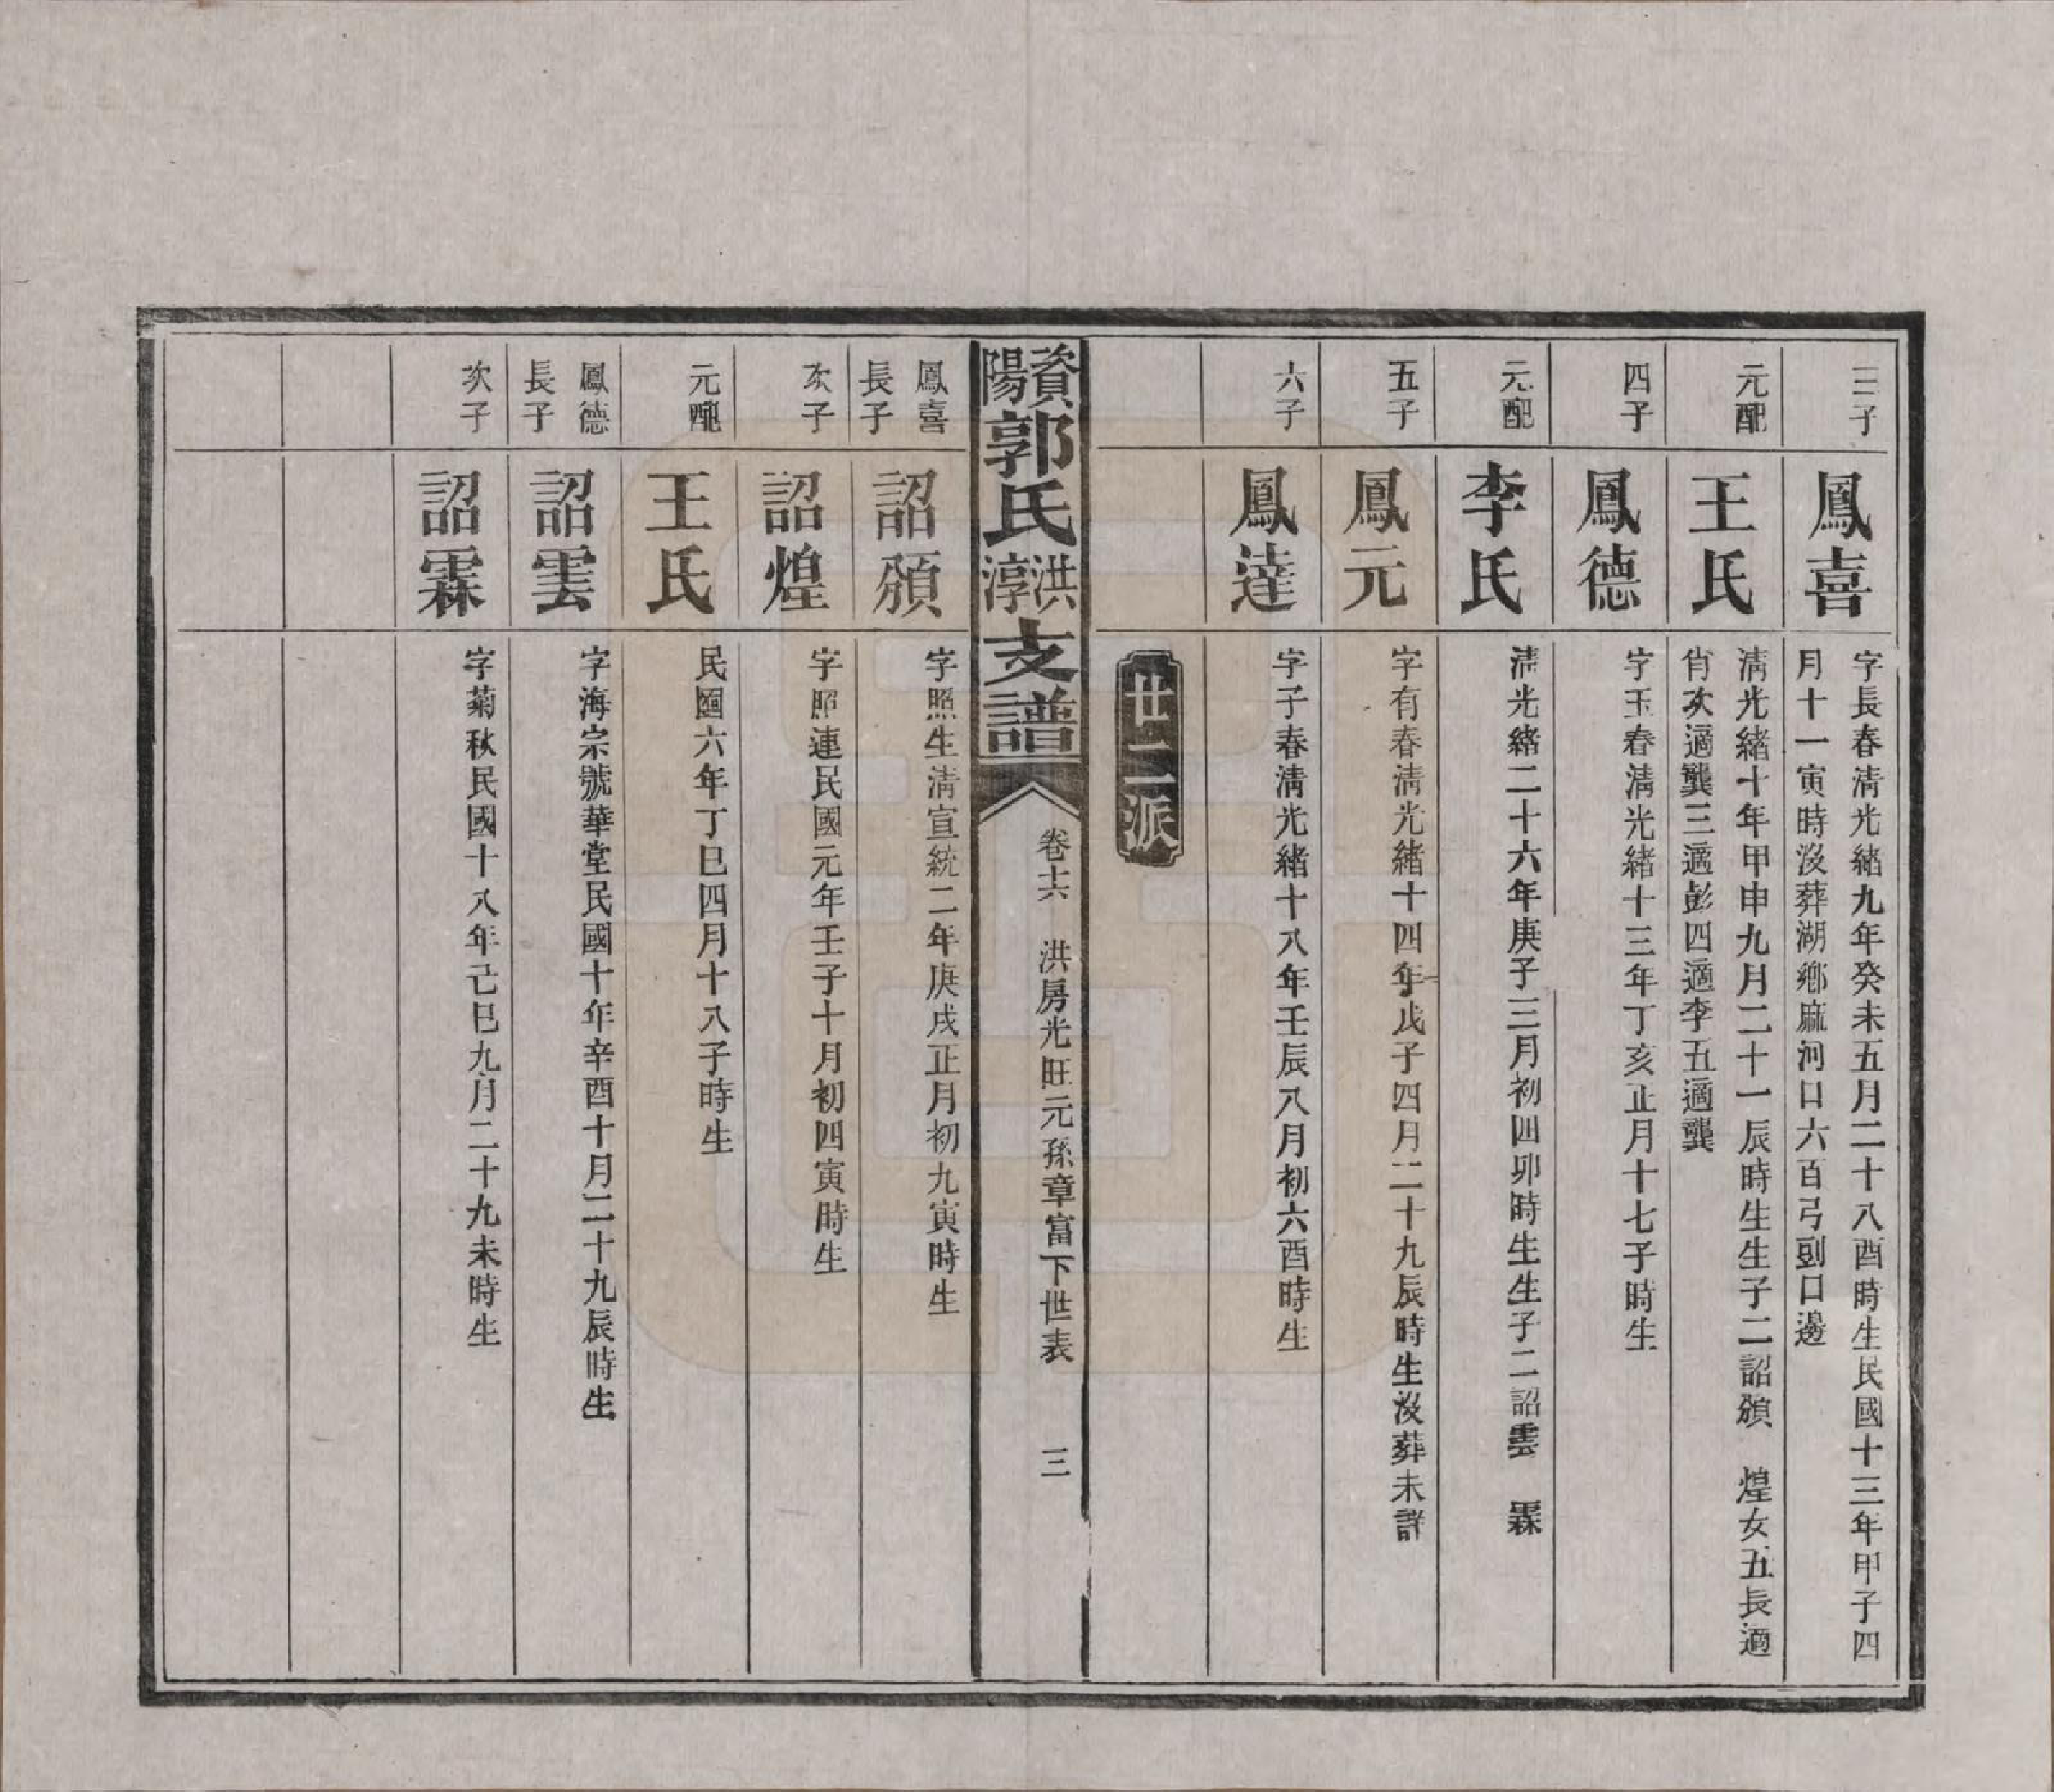 三子
鳳喜
字長春淸光緒九年癸未五月二十八酉時生民國十三年甲子四
月十一寅時沒葬湖鄉麻河口六百弓剅口邊
元配
王氏
淸光緒十年甲申九月二十一辰時生生子二詔頒　煌女五長適
肖次適龔三適彭四適李五適龔
四子
鳳德
字玉春淸光緒十三年丁亥正月十七子時生
元配
李氏
淸光緒二十六年庚子三月初四卯時生生子二詔雲　霖
五子
鳳元
字有春淸光緒十四年戊子四月二十九辰時生沒葬未詳
六子
鳳達
字子春淸光緒十八年壬辰八月初六酉時生
廿二派
資陽郭氏洪淳支譜
卷十六　洪房光旺元孫章富下世表　三
鳳喜
長子
詔頒
字照生淸宣統二年庚戌正月初九寅時生
次子
詔煌
字照連民國元年壬子十月初四寅時生
元配
王氏
民國六年丁巳四月十八子時生
鳳德
長子
詔雲
字海宗號華堂民國十年辛酉十月二十九辰時生
次子
詔霖
字菊秋民國十八年己巳九月二十九未時生